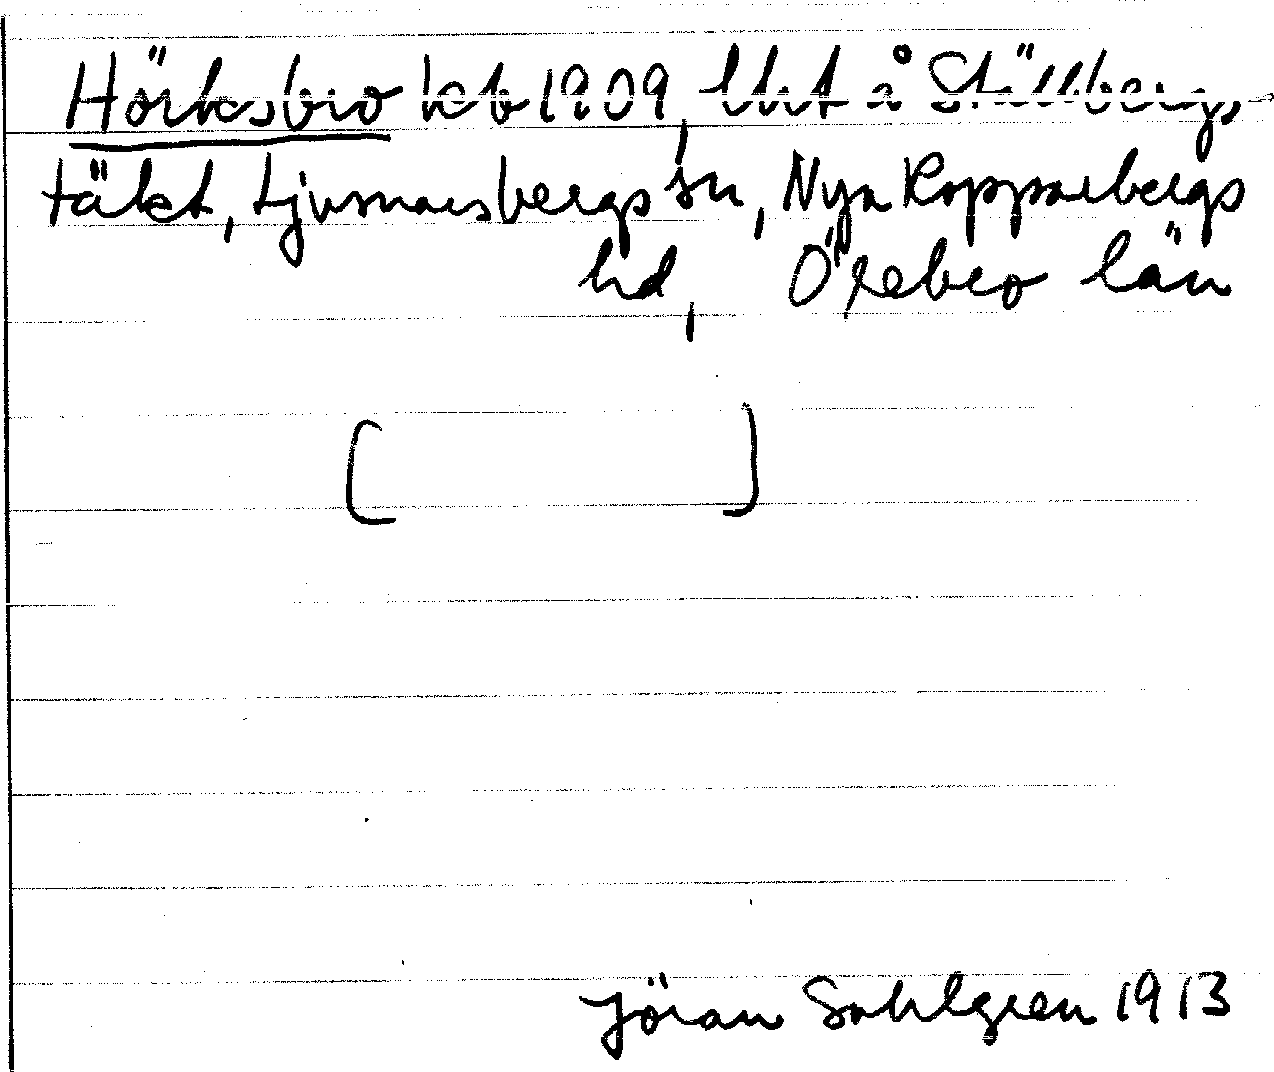 Hörksbro kb 1909, lht å Ställbergs-
täkt, Ljusnarsbergs sn, Nya Kopparbergs
hd, Örebro län
[ ]
Jöran Sahlgren 1913